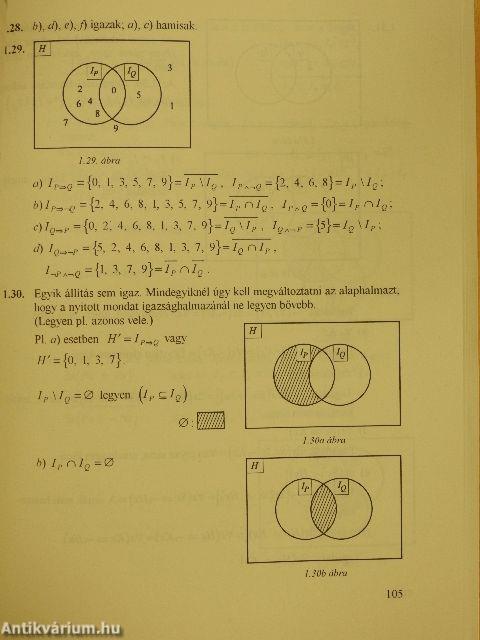 .28. b), d), e), f) igazak; a), c) hamisak.
1.29.
H
I_P I_Q 3
2 0 5
6 4 1
8
7 9
1.29. ábra
a) I_{P⇒Q} = {0, 1, 3, 5, 7, 9} = \overline{I_P \ I_Q}, I_{P∧¬Q} = {2, 4, 6, 8} = I_P \ I_Q;
b) I_{P⇒¬Q} = {2, 4, 6, 8, 1, 3, 5, 7, 9} = \overline{I_P ∩ I_Q}, I_{P∧Q} = {0} = I_P ∩ I_Q;
c) I_{Q⇒P} = {0, 2, 4, 6, 8, 1, 3, 7, 9} = \overline{I_Q \ I_P}, I_{Q∧¬P} = {5} = I_Q \ I_P;
d) I_{Q⇒¬P} = {5, 2, 4, 6, 8, 1, 3, 7, 9} = \overline{I_Q ∩ I_P},
I_{¬P∧¬Q} = {1, 3, 7, 9} = \overline{I_P} ∩ \overline{I_Q}.
1.30. Egyik állítás sem igaz. Mindegyiknél úgy kell megváltoztatni az alaphalmazt,
hogy a nyitott mondat igazsághalmazánál ne legyen bővebb.
(Legyen pl. azonos vele.)
Pl. a) esetben H' = I_{P⇒Q} vagy
H' = {0, 1, 3, 7}.
I_P \ I_Q = ∅ legyen. (I_P ⊆ I_Q)
∅:
H
I_P I_Q
1.30a ábra
b) I_P ∩ I_Q = ∅
H
I_P I_Q
1.30b ábra
105
Antikvárium.hu